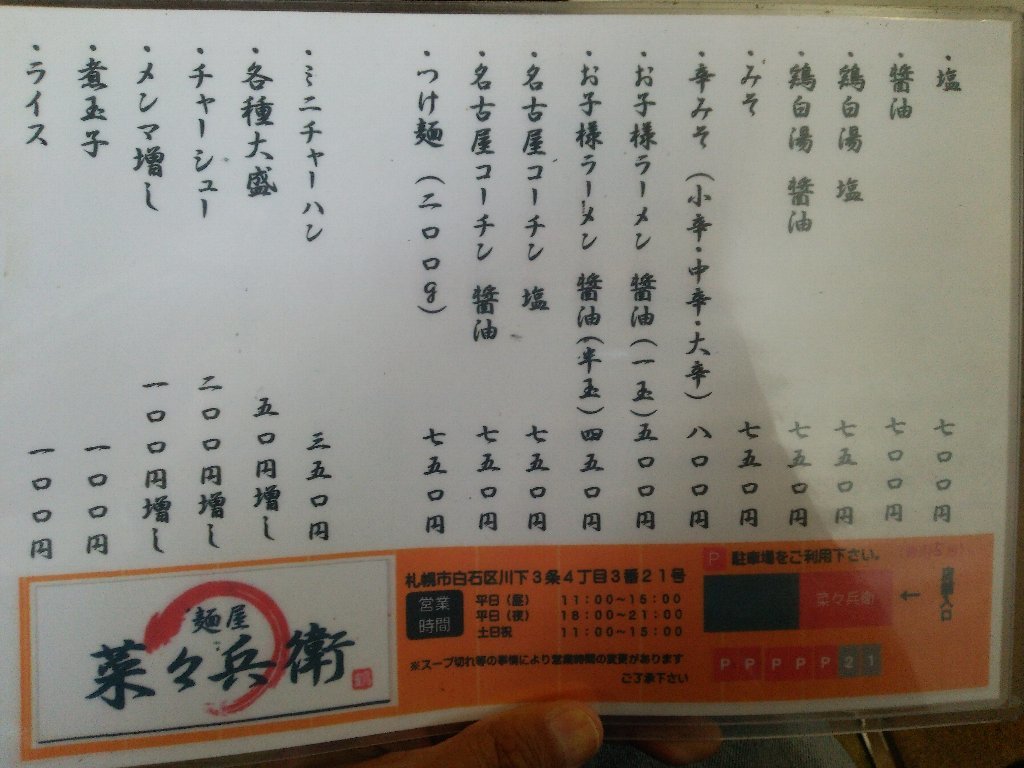 ・塩 七〇〇円
・醤油 七〇〇円
・鶏白湯 塩 七五〇円
・鶏白湯 醤油 七五〇円
・みそ 七五〇円
・辛みそ(小辛・中辛・大辛) 八〇〇円
・お子様ラーメン 醤油(一玉) 五〇〇円
・お子様ラーメン 醤油(半玉) 四五〇円
・名古屋コーチン 塩 七五〇円
・名古屋コーチン 醤油 七五〇円
・つけ麺(二〇〇g) 七五〇円
・ミニチャーハン 三五〇円
・各種大盛 五〇円増し
・チャーシュー 二〇〇円増し
・メンマ増し 一〇〇円増し
・煮玉子 一〇〇円
・ライス 一〇〇円
麺屋
菜々兵衛
札幌市白石区川下3条4丁目3番21号
営業時間
平日(昼) 11:00~15:00
平日(夜) 18:00~21:00
土日祝 11:00~15:00
※スープ切れ等の事情により営業時間の変更があります
ご了承下さい
P 駐車場をご利用下さい。
菜々兵衛
←
入口
P P P P P 2 1